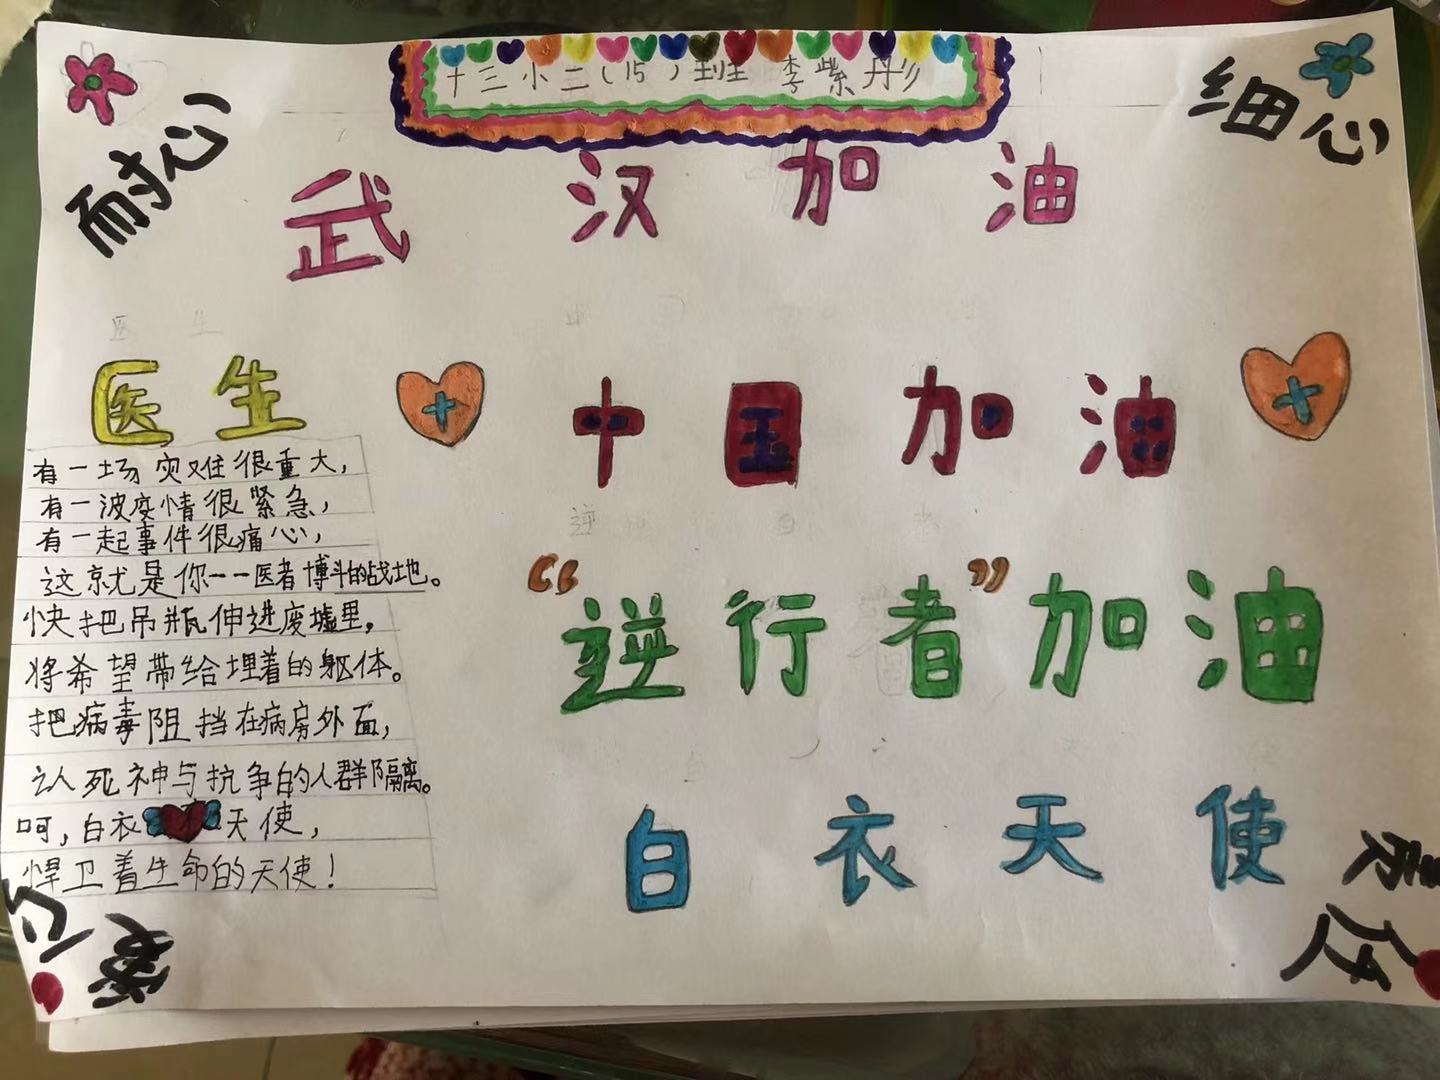 十三小二(15)班 李紫彤
耐心
细心
武汉加油
医生
中国加油
有一场灾难很重大，
有一波疫情很紧急，
有一起事件很痛心，
这就是你一一医者博斗的战地。
快把吊瓶伸进废墟里，
将希望带给埋着的躯体。
把病毒阻挡在病房外面，
让死神与抗争的人群隔离。
呵，白衣天使，
悍卫着生命的天使！
“逆行者”加油
白衣天使
责任